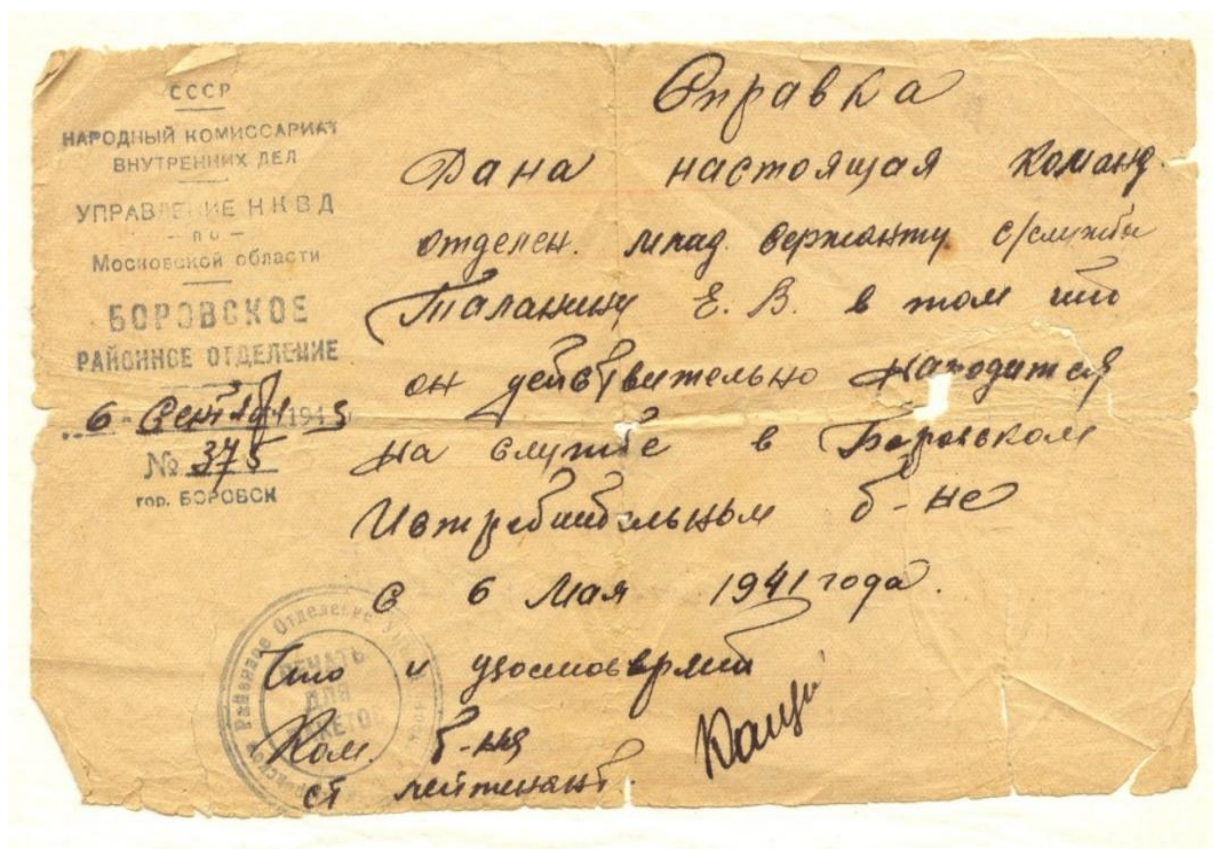 СССР
НАРОДНЫЙ КОМИССАРИАТ
ВНУТРЕННИХ ДЕЛ
УПРАВЛЕНИЕ НКВД
— по —
Московской области
БОРОВСКОЕ
РАЙОННОЕ ОТДЕЛЕНИЕ
6 Сентября 1945
№ 375
гор. БОРОВСК
Справка
Дана настоящая Команд.
отделен. млад. сержанту с/службы
Таланину Е. В. в том что
он действительно находится
на службе в Боровском
Истребительном б-не
с 6 Мая 1941 года.
Что и удостоверяет
Ком. б-на
ст лейтенант.
ПЕЧАТЬ
ДЛЯ
ПАКЕТОВ
Районное Отделение